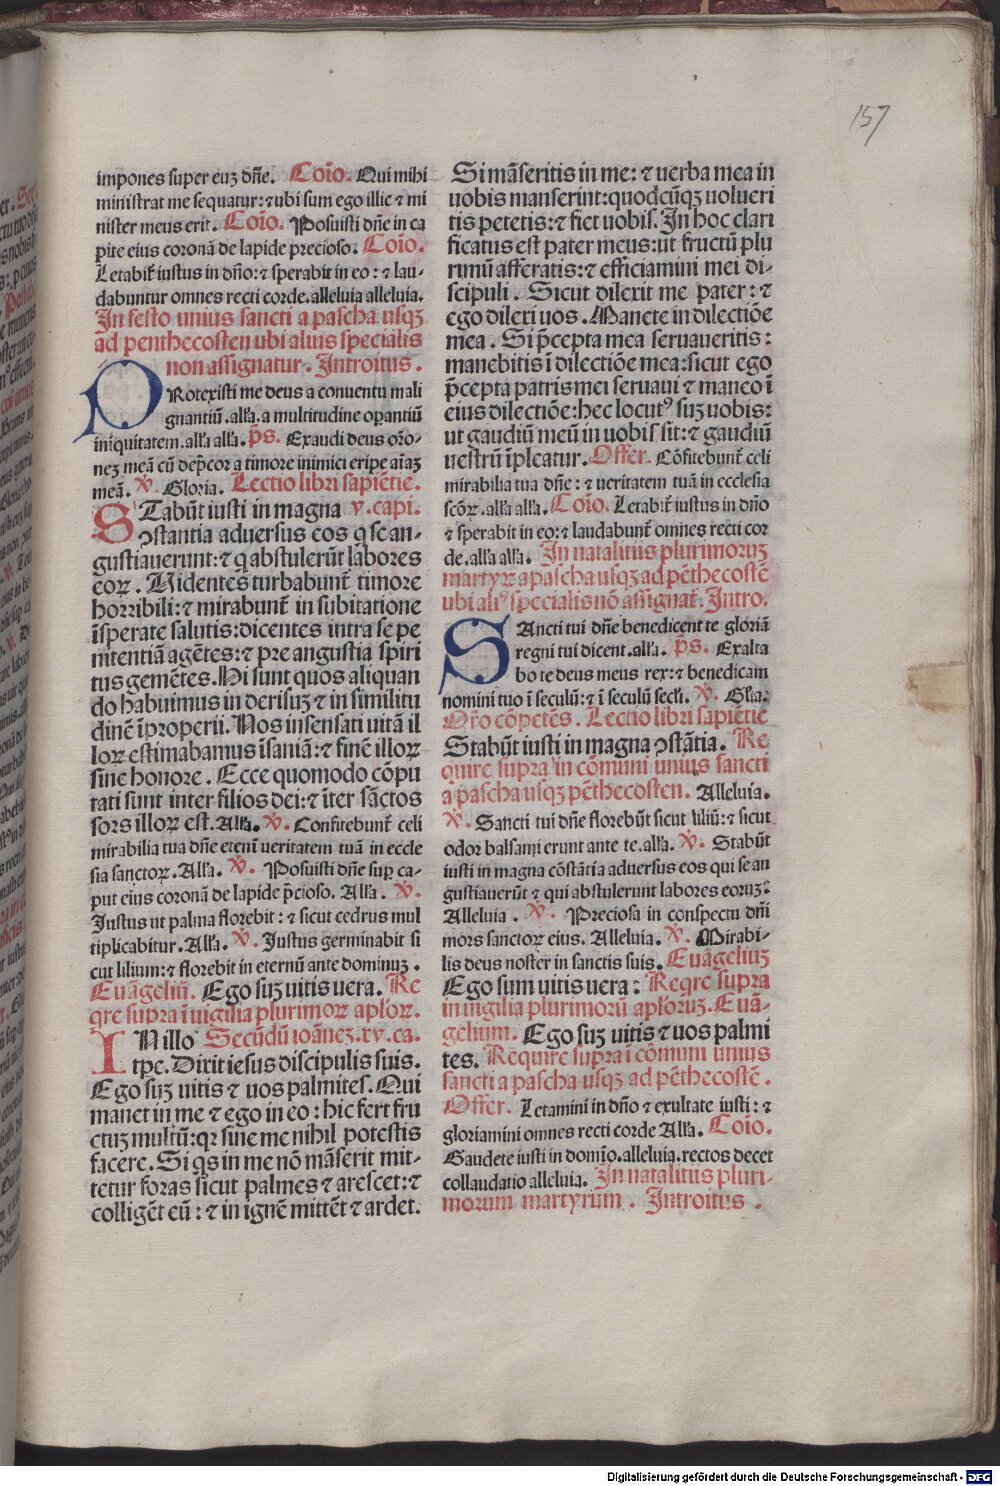 157
impones super euꝫ dñe. Coĩo. Qui mihi
ministrat me sequatur: ⁊ ubi sum ego illic ⁊ mi
nister meus erit. Coĩo. Posuisti dñe in ca
pite eius coronã de lapide precioso. Coĩo.
Letabit᷑ iustus in dño: ⁊ sperabit in eo: ⁊ lau-
dabuntur omnes recti corde. alleluia alleluia.
In festo unius sancti a pascha usqꝫ
ad penthecosten ubi alius specialis
non assignatur. Introitus.
PRotexisti me deus a conuentu mali
gnantiũ. alľa. a multitudine oꝑantiũ
iniquitatem. alľa alľa. p̃s. Exaudi deus orõ-
neꝫ meã cũ dep̃cor a timore inimici eripe aĩaꝫ
meã. ℣. Gloria. Lectio libri sapiẽtie.
STabũt iusti in magna v. capi.
ↄstantia aduersus eos q̃ se an-
gustiauerunt: ⁊ q̃ abstulerũt labores
eoꝝ. Uidentes turbabunt᷑ timore
horribili: ⁊ mirabunt᷑ in subitatione
ĩsperate salutis: dicentes intra se pe
nitentiã agẽtes: ⁊ pre angustia spiri
tus gemẽtes. Hi sunt quos aliquan
do habuimus in derisuꝫ ⁊ in similitu
dinẽ ĩproperii. Nos insensati uitã il
loꝝ estimabamus ĩsaniã: ⁊ finẽ illoꝝ
sine honore. Ecce quomodo cõpu
tati sunt inter filios dei: ⁊ ĩter sãctos
sors illoꝝ est. Alľa. ℣. Confitebunt᷑ celi
mirabilia tua dñe etenĩ ueritatem tuã in eccle
sia sanctoꝝ. Alľa. ℣. Posuisti dñe suꝑ ca-
put eius coronã de lapide p̃cioso. Alľa. ℣.
Iustus ut palma florebit: ⁊ sicut cedrus mul
tiplicabitur. Alľa. ℣. Iustus germinabit si
cut lilium: ⁊ florebit in eternũ ante dominuꝫ.
Euãgeliũ. Ego suꝫ uitis uera. Re
q̃re supra ĩ uigilia plurimoꝝ apľoꝝ.
IN illo Secũdũ ioãneꝫ. xv. ca.
tꝑe. Dixit iesus discipulis suis.
Ego suꝫ uitis ⁊ uos palmites. Qui
manet in me ⁊ ego in eo: hic fert fru
ctuꝫ multũ: qꝛ sine me nihil potestis
facere. Si q̃s in me nõ mãserit mit-
tetur foras sicut palmes ⁊ arescet: ⁊
colligẽt eũ: ⁊ in ignẽ mittẽt ⁊ ardet.
Si mãseritis in me: ⁊ uerba mea in
uobis manserint: quodcũqꝫ uolueri
tis petetis: ⁊ fiet uobis. In hoc clari
ficatus est pater meus: ut fructũ plu
rimũ afferatis: ⁊ efficiamini mei di-
scipuli. Sicut dilexit me pater: ⁊
ego dilexi uos. Manete in dilectiõe
mea. Si p̃cepta mea seruaueritis:
manebitis ĩ dilectiõe mea: sicut ego
p̃cepta patris mei seruaui ⁊ maneo ĩ
eius dilectiõe: hec locutꝰ suꝫ uobis:
ut gaudiũ meũ in uobis sit: ⁊ gaudiũ
uestrũ ĩpleatur. Offer. Cõfitebunt᷑ celi
mirabilia tua dñe: ⁊ ueritatem tuã in ecclesia
scõꝝ. alľa alľa. Coĩo. Letabit᷑ iustus in dño
⁊ sperabit in eo: ⁊ laudabunt᷑ omnes recti cor
de. alľa alľa. In natalitiis plurimoruꝫ
martyꝝ a pascha usqꝫ ad pẽthecostẽ
ubi aliꝰ specialis nõ assignat᷑. Intro.
SAncti tui dñe benedicent te gloriã
regni tui dicent. alľa. p̃s. Exalta
bo te deus meus rex: ⁊ benedicam
nomini tuo ĩ seculũ: ⁊ ĩ seculũ secľi. ℣. Gľia.
Orõ cõpetẽs. Lectio libri sapiẽtie
Stabũt iusti in magna ↄstãtia. Re
quire supra in cõmuni unius sancti
a pascha usqꝫ pẽthecosten. Alleluia.
℣. Sancti tui dñe florebũt sicut liliũ: ⁊ sicut
odor balsami erunt ante te. alľa. ℣. Stabũt
iusti in magna cõstãtia aduersus eos qui se an
gustiauerũt ⁊ qui abstulerunt labores eoruꝫ.
Alleluia. ℣. Preciosa in conspectu dñi
mors sanctoꝝ eius. Alleluia. ℣. Mirabi-
lis deus noster in sanctis suis. Euãgeliuꝫ
Ego sum uitis uera: Reqre supra
in uigilia plurimorũ apľoruꝫ. Euã-
gelium. Ego suꝫ uitis ⁊ uos palmi
tes. Require supra ĩ cõmuni unius
sancti a pascha usqꝫ ad pẽthecostẽ.
Offer. Letamini in dño ⁊ exultate iusti: ⁊
gloriamini omnes recti corde Alľa. Coĩo.
Gaudete iusti in domĩo. alleluia. rectos decet
collaudatio alleluia. In natalitiis pluri-
morum martyrum. Introitus.
Digitalisierung gefördert durch die Deutsche Forschungsgemeinschaft - DFG